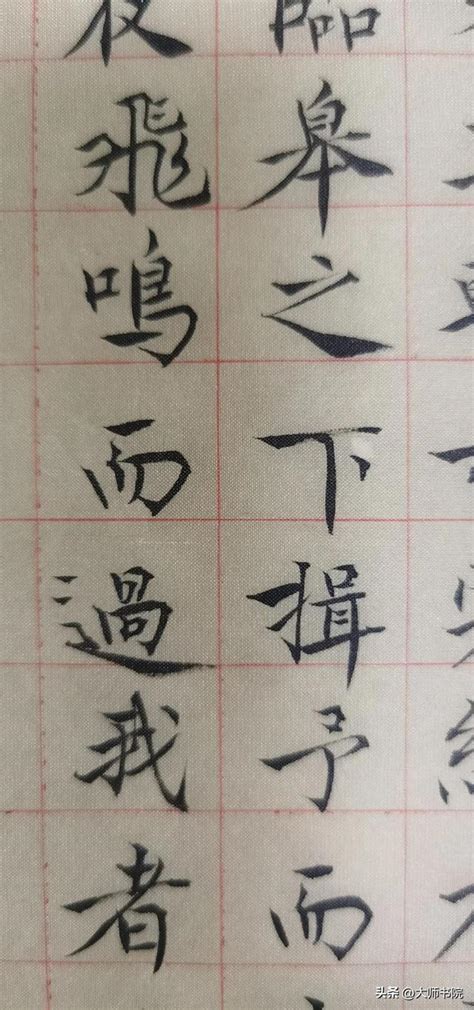 臨皋之下揖予而
夜飛鳴而過我者
头条 @大师书院